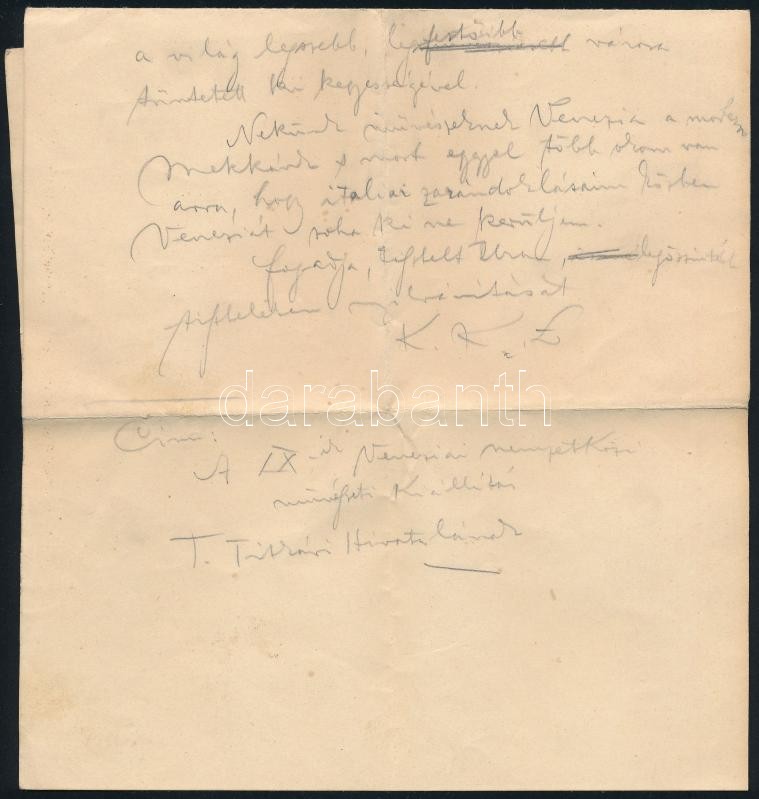 a világ legszebb, legfestőibb városa
tüntetett ki kegyességével.
Nekünk művészeknek Venezia a modern
Mekkánk s most eggyel több okom van
arra, hogy itáliai zarándoklásaim közben
Veneziát soha ki ne kerüljem.
Fogadja, tisztelt Uram, legőszintébb
tiszteletem nyilvánítását
K. K. E
darabanth
Cím:
A IX-ik Veneziai nemzetközi
művészeti Kiállítás
T. Titkári Hivatalának